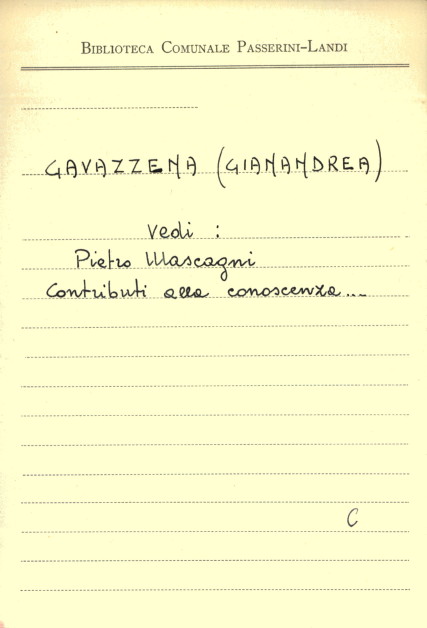 BIBLIOTECA COMUNALE PASSERINI-LANDI
GAVAZZENA (GIANANDREA)
Vedi :
Pietro Mascagni
Contributi alla conoscenza...
C